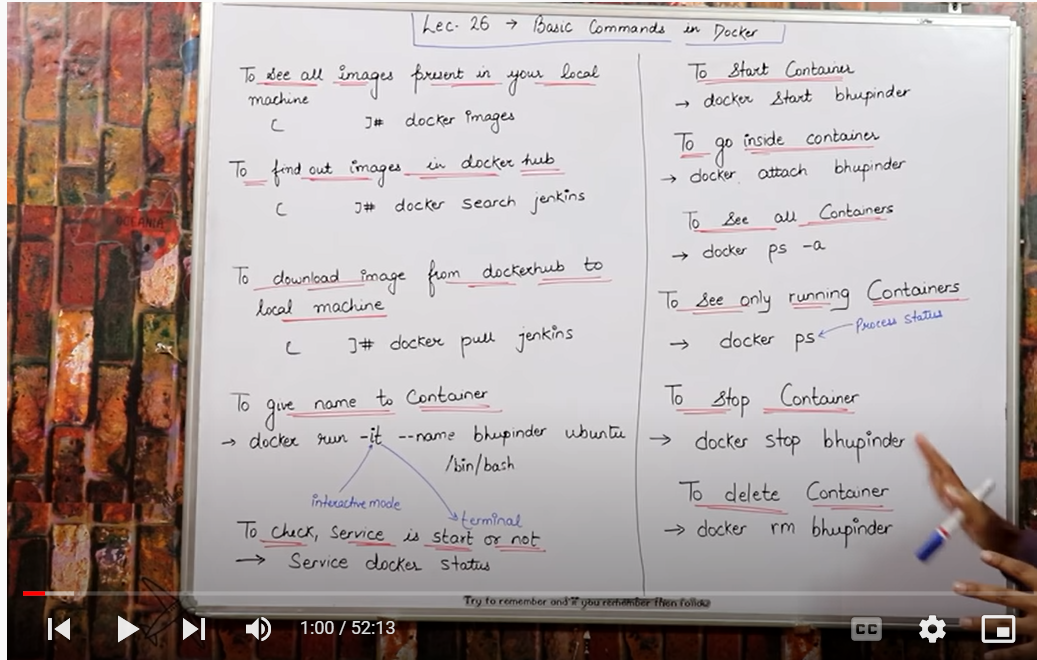 Lec. 26 → Basic Commands in Docker
To see all images present in your local
machine
[ ]# docker images
To find out images in docker hub
[ ]# docker search jenkins
To download image from dockerhub to
local machine
[ ]# docker pull jenkins
To give name to Container
→ docker run -it --name bhupinder ubuntu
/bin/bash
interactive mode
terminal
To check, service is start or not
→ Service docker status
To Start Container
→ docker start bhupinder
To go inside container
→ docker attach bhupinder
To see all Containers
→ docker ps -a
To see only running Containers
→ docker ps
Process status
To stop Container
→ docker stop bhupinder
To delete Container
→ docker rm bhupinder
OCEANIA
Try to remember and if you remember then follow
1:00 / 52:13
CC